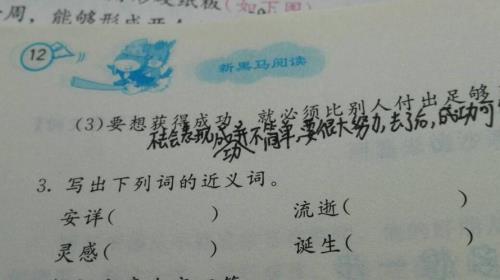 周，能够形成开
(如下图)
12
新黑马阅读
(3)要想获得成功，就必须比别人付出足够
社会表现成功不简单，要很大努力，去了后，成功可
3. 写出下列词的近义词。
安详(　　　) 流逝(　　　)
灵感(　　　) 诞生(　　　)